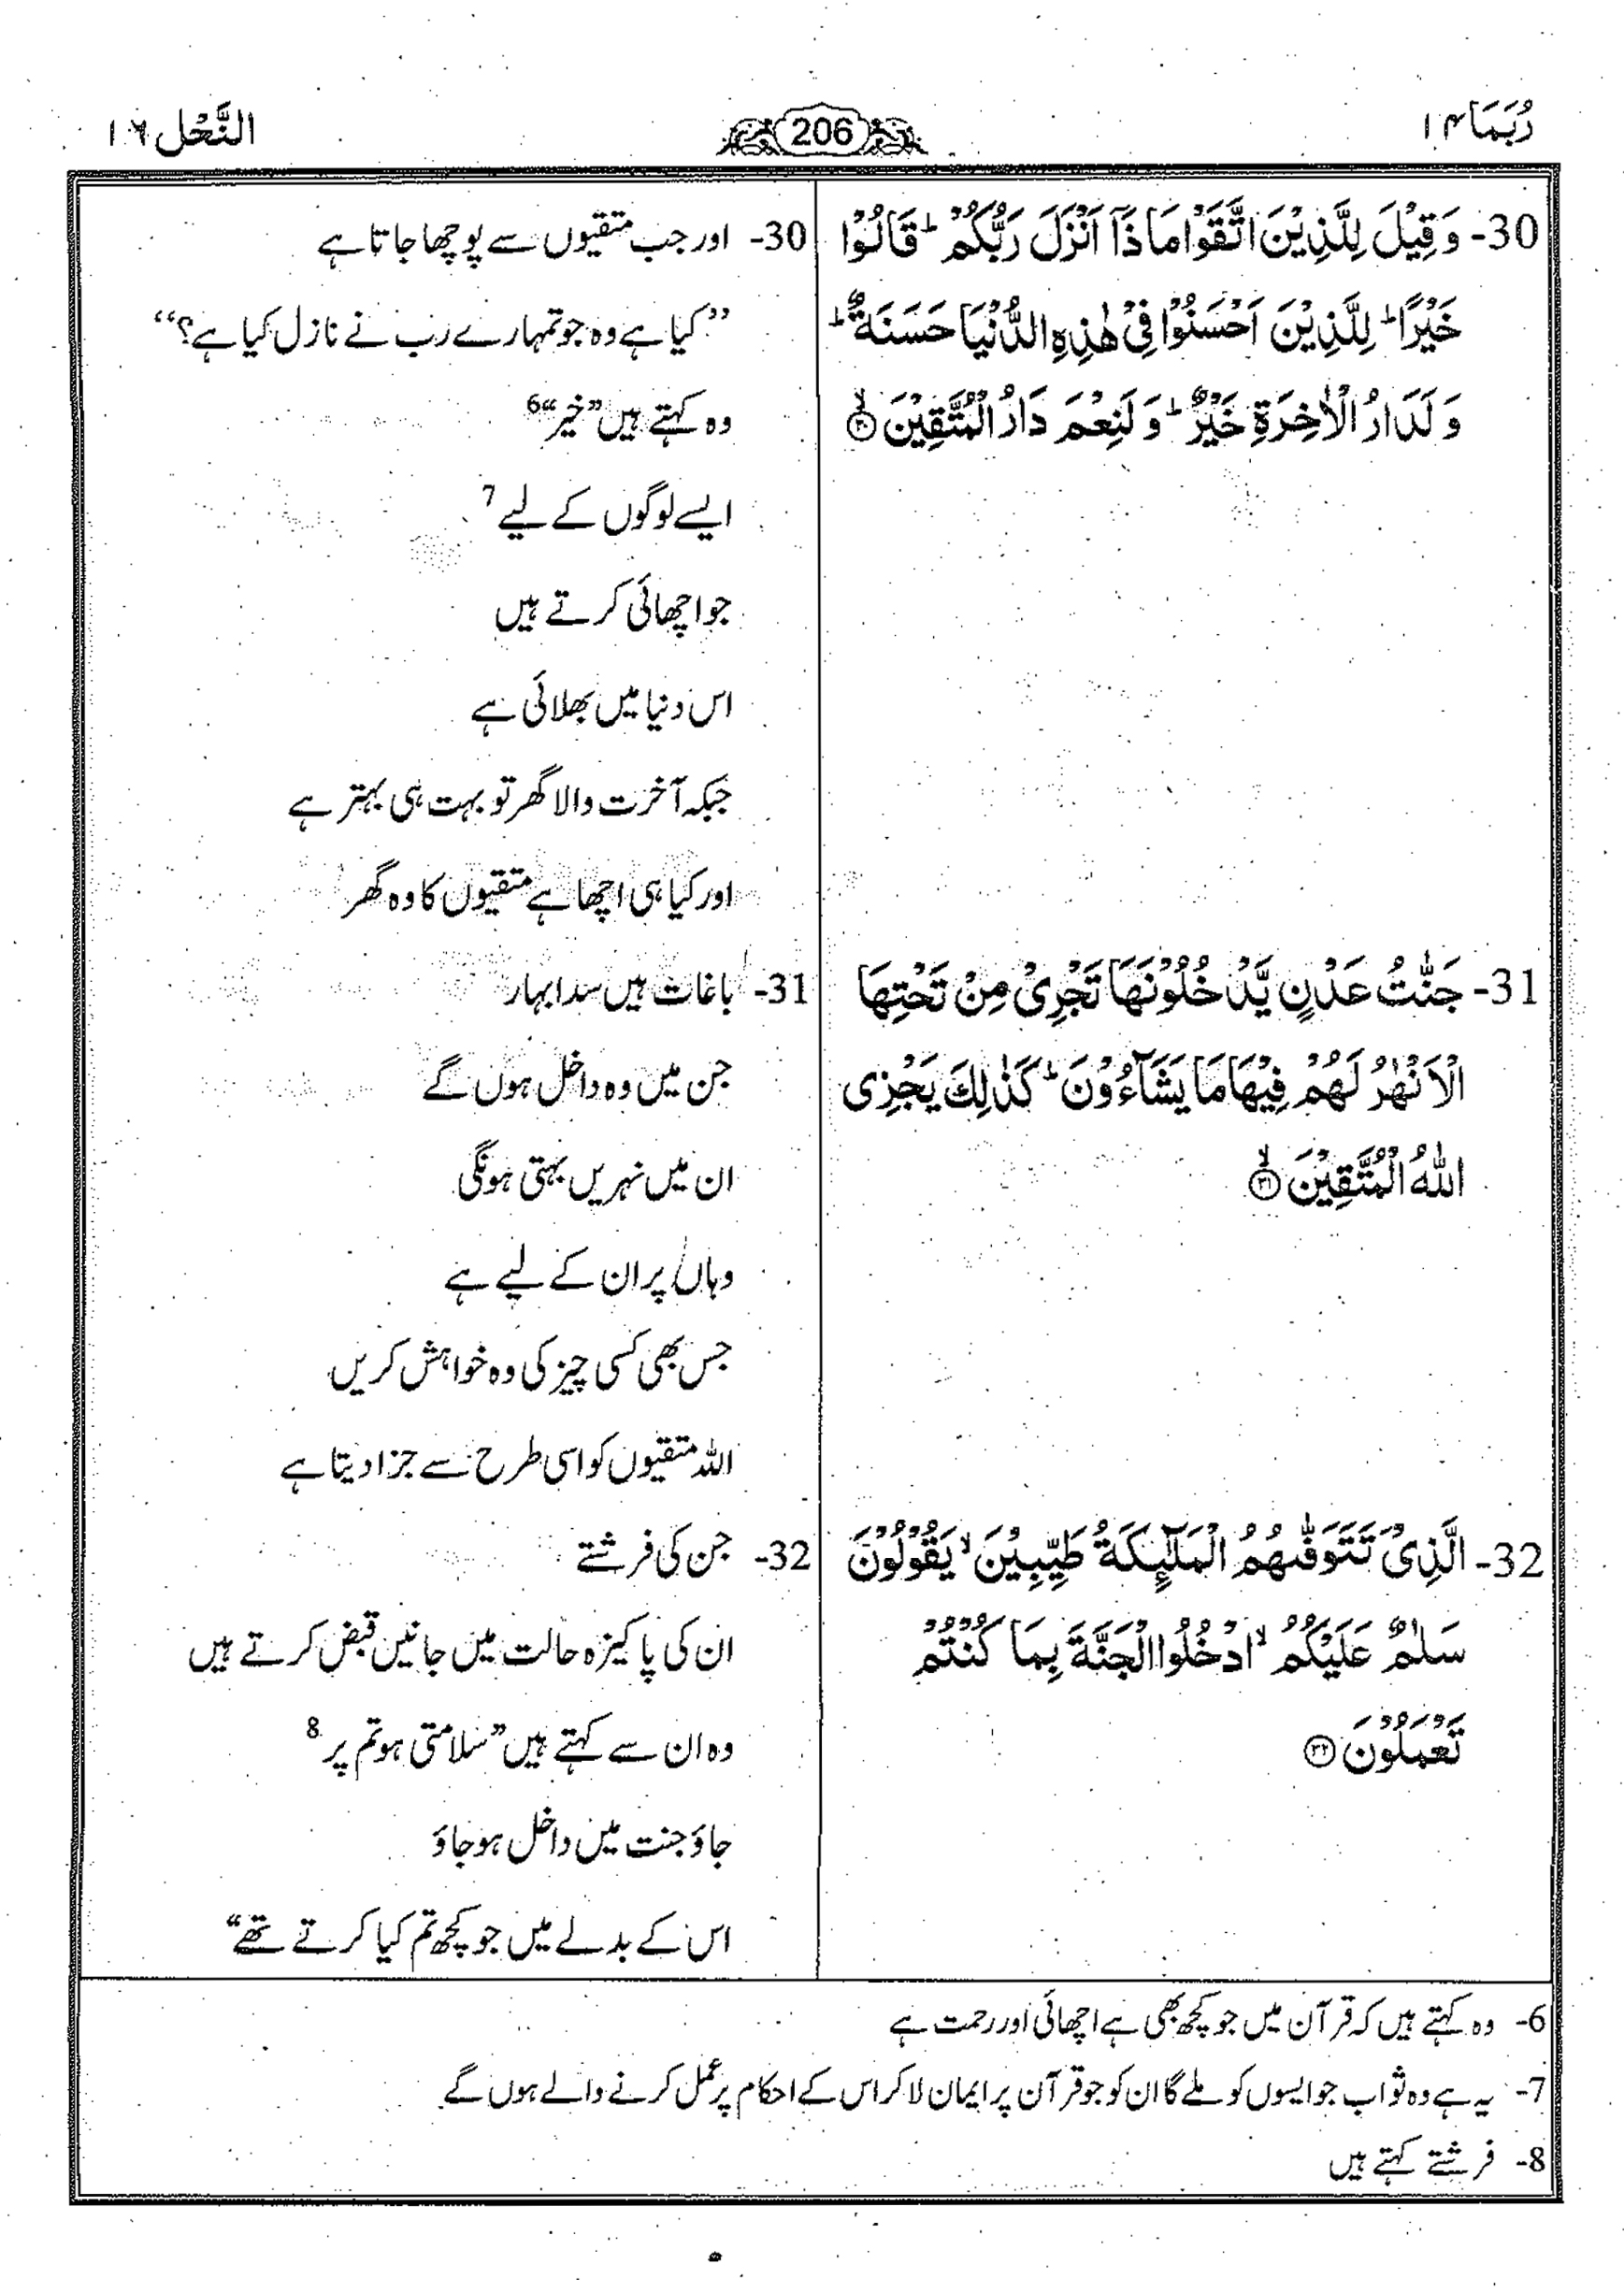 رُبَمَا ۱۴
206
النَّحْل ۱۶
30- وَقِيْلَ لِلَّذِيْنَ اتَّقَوْا مَاذَآ اَنْزَلَ رَبُّكُمْ ؕ قَالُوْا
خَيْرًا ؕ لِلَّذِيْنَ اَحْسَنُوْا فِيْ هٰذِهِ الدُّنْيَا حَسَنَةٌ ؕ
وَ لَدَارُ الْاٰخِرَةِ خَيْرٌ ؕ وَ لَنِعْمَ دَارُ الْمُتَّقِيْنَ ۙ﴿۳۰﴾
31- جَنّٰتُ عَدْنٍ يَّدْخُلُوْنَهَا تَجْرِيْ مِنْ تَحْتِهَا
الْاَنْهٰرُ لَهُمْ فِيْهَا مَا يَشَآءُوْنَ ؕ كَذٰلِكَ يَجْزِي
اللّٰهُ الْمُتَّقِيْنَ ۙ﴿۳۱﴾
32- الَّذِيْ تَتَوَفّٰىهُمُ الْمَلٰٓئِكَةُ طَيِّبِيْنَ ۙ يَقُوْلُوْنَ
سَلٰمٌ عَلَيْكُمُ ۙ ادْخُلُوا الْجَنَّةَ بِمَا كُنْتُمْ
تَعْمَلُوْنَ ﴿۳۲﴾
30- اور جب متقیوں سے پوچھا جاتا ہے
’’کیا ہے وہ جو تمہارے رب نے نازل کیا ہے؟‘‘
وہ کہتے ہیں ”خیر“6
ایسے لوگوں کے لیے 7
جو اچھائی کرتے ہیں
اس دنیا میں بھلائی ہے
جبکہ آخرت والا گھر تو بہت ہی بہتر ہے
اور کیا ہی اچھا ہے متقیوں کا وہ گھر
31- باغات ہیں سدا بہار
جن میں وہ داخل ہوں گے
ان میں نہریں بہتی ہونگی
وہاں پر ان کے لیے ہے
جس بھی کسی چیز کی وہ خواہش کریں
اللہ متقیوں کو اسی طرح سے جزا دیتا ہے
32- جن کی فرشتے
ان کی پاکیزہ حالت میں جانیں قبض کرتے ہیں
وہ ان سے کہتے ہیں ”سلامتی ہو تم پر 8
جاؤ جنت میں داخل ہو جاؤ
اس کے بدلے میں جو کچھ تم کیا کرتے تھے“
6- وہ کہتے ہیں کہ قرآن میں جو کچھ بھی ہے اچھائی اور رحمت ہے
7- یہ ہے وہ ثواب جو ایسوں کو ملے گا ان کو جو قرآن پر ایمان لا کر اس کے احکام پر عمل کرنے والے ہوں گے
8- فرشتے کہتے ہیں